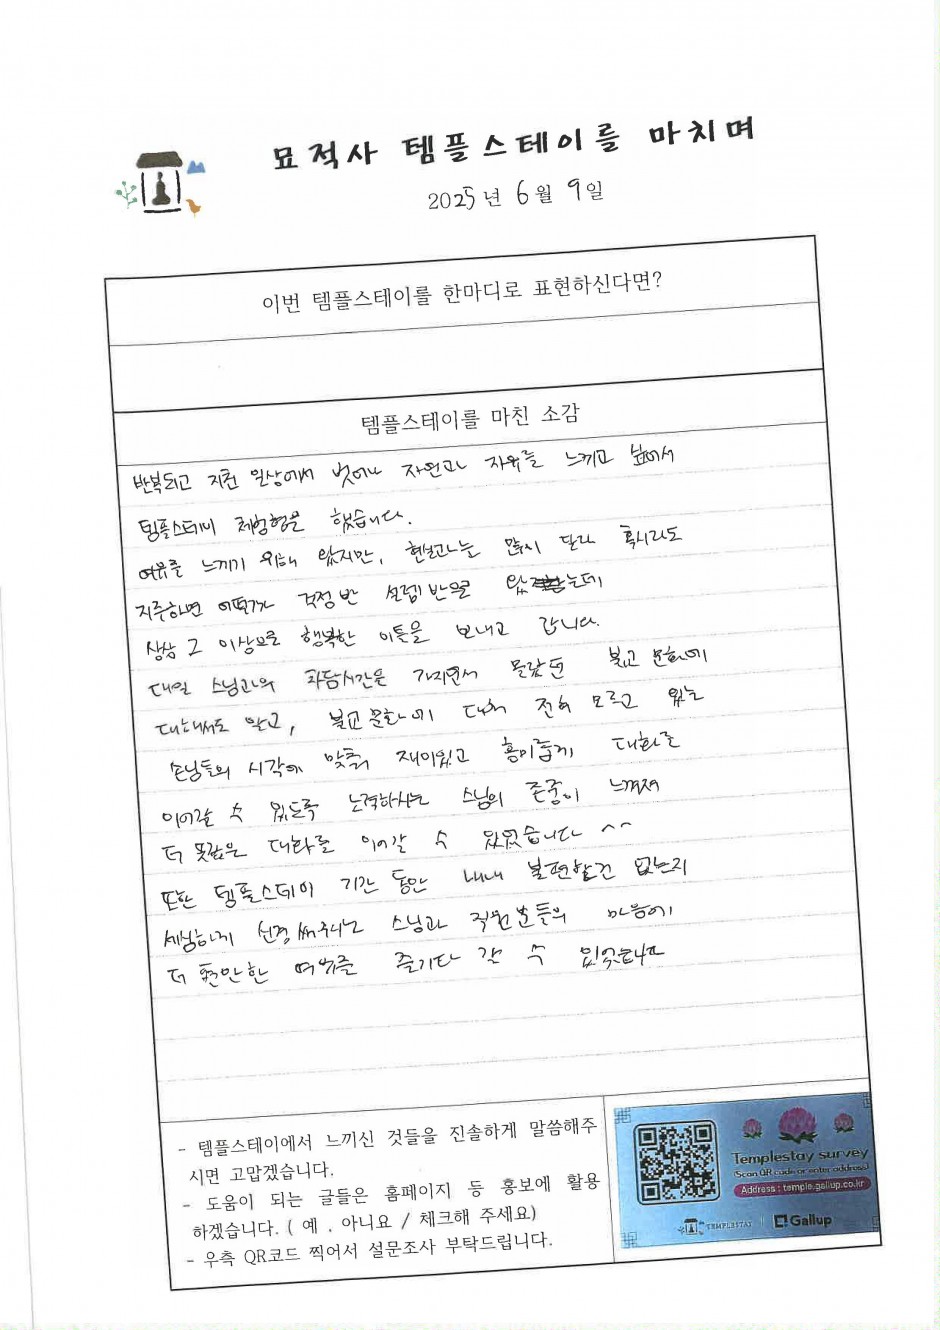 묘적사 템플스테이를 마치며
2025년 6월 9일
이번 템플스테이를 한마디로 표현하신다면?
템플스테이를 마친 소감
반복되고 지친 일상에서 벗어나 자연과 자유를 느끼고 싶어서
템플스테이 체험형을 했습니다.
여유를 느끼기 위해 왔지만, 현실과는 많이 달라 혹시라도
지루하면 어떨까 걱정 반 설렘 반으로 왔는데
상상 그 이상으로 행복한 이틀을 보내고 갑니다.
대일 스님과의 차담시간을 가지면서 몰랐던 불교 문화에
대해서도 알고, 불교문화에 대해 전혀 모르고 있는
손님들의 시각에 맞춰 재미있고 흥미롭게 대화를
이어갈 수 있도록 노력하시는 스님의 존중이 느껴져
더 뜻깊은 대화를 이어갈 수 있었습니다 ^^
또한 템플스테이 기간 동안 내내 불편한건 없는지
세심하게 신경써주시는 스님과 직원분들의 마음에
더 편안한 여유를 즐기다 갈 수 있었습니다
- 템플스테이에서 느끼신 것들을 진솔하게 말씀해주
시면 고맙겠습니다.
- 도움이 되는 글들은 홈페이지 등 홍보에 활용
하겠습니다. ( 예 . 아니요 / 체크해 주세요)
- 우측 QR코드 찍어서 설문조사 부탁드립니다.
Templestay survey
(Scan QR code or enter address)
Address : temple.gallup.co.kr
TEMPLESTAY | Gallup